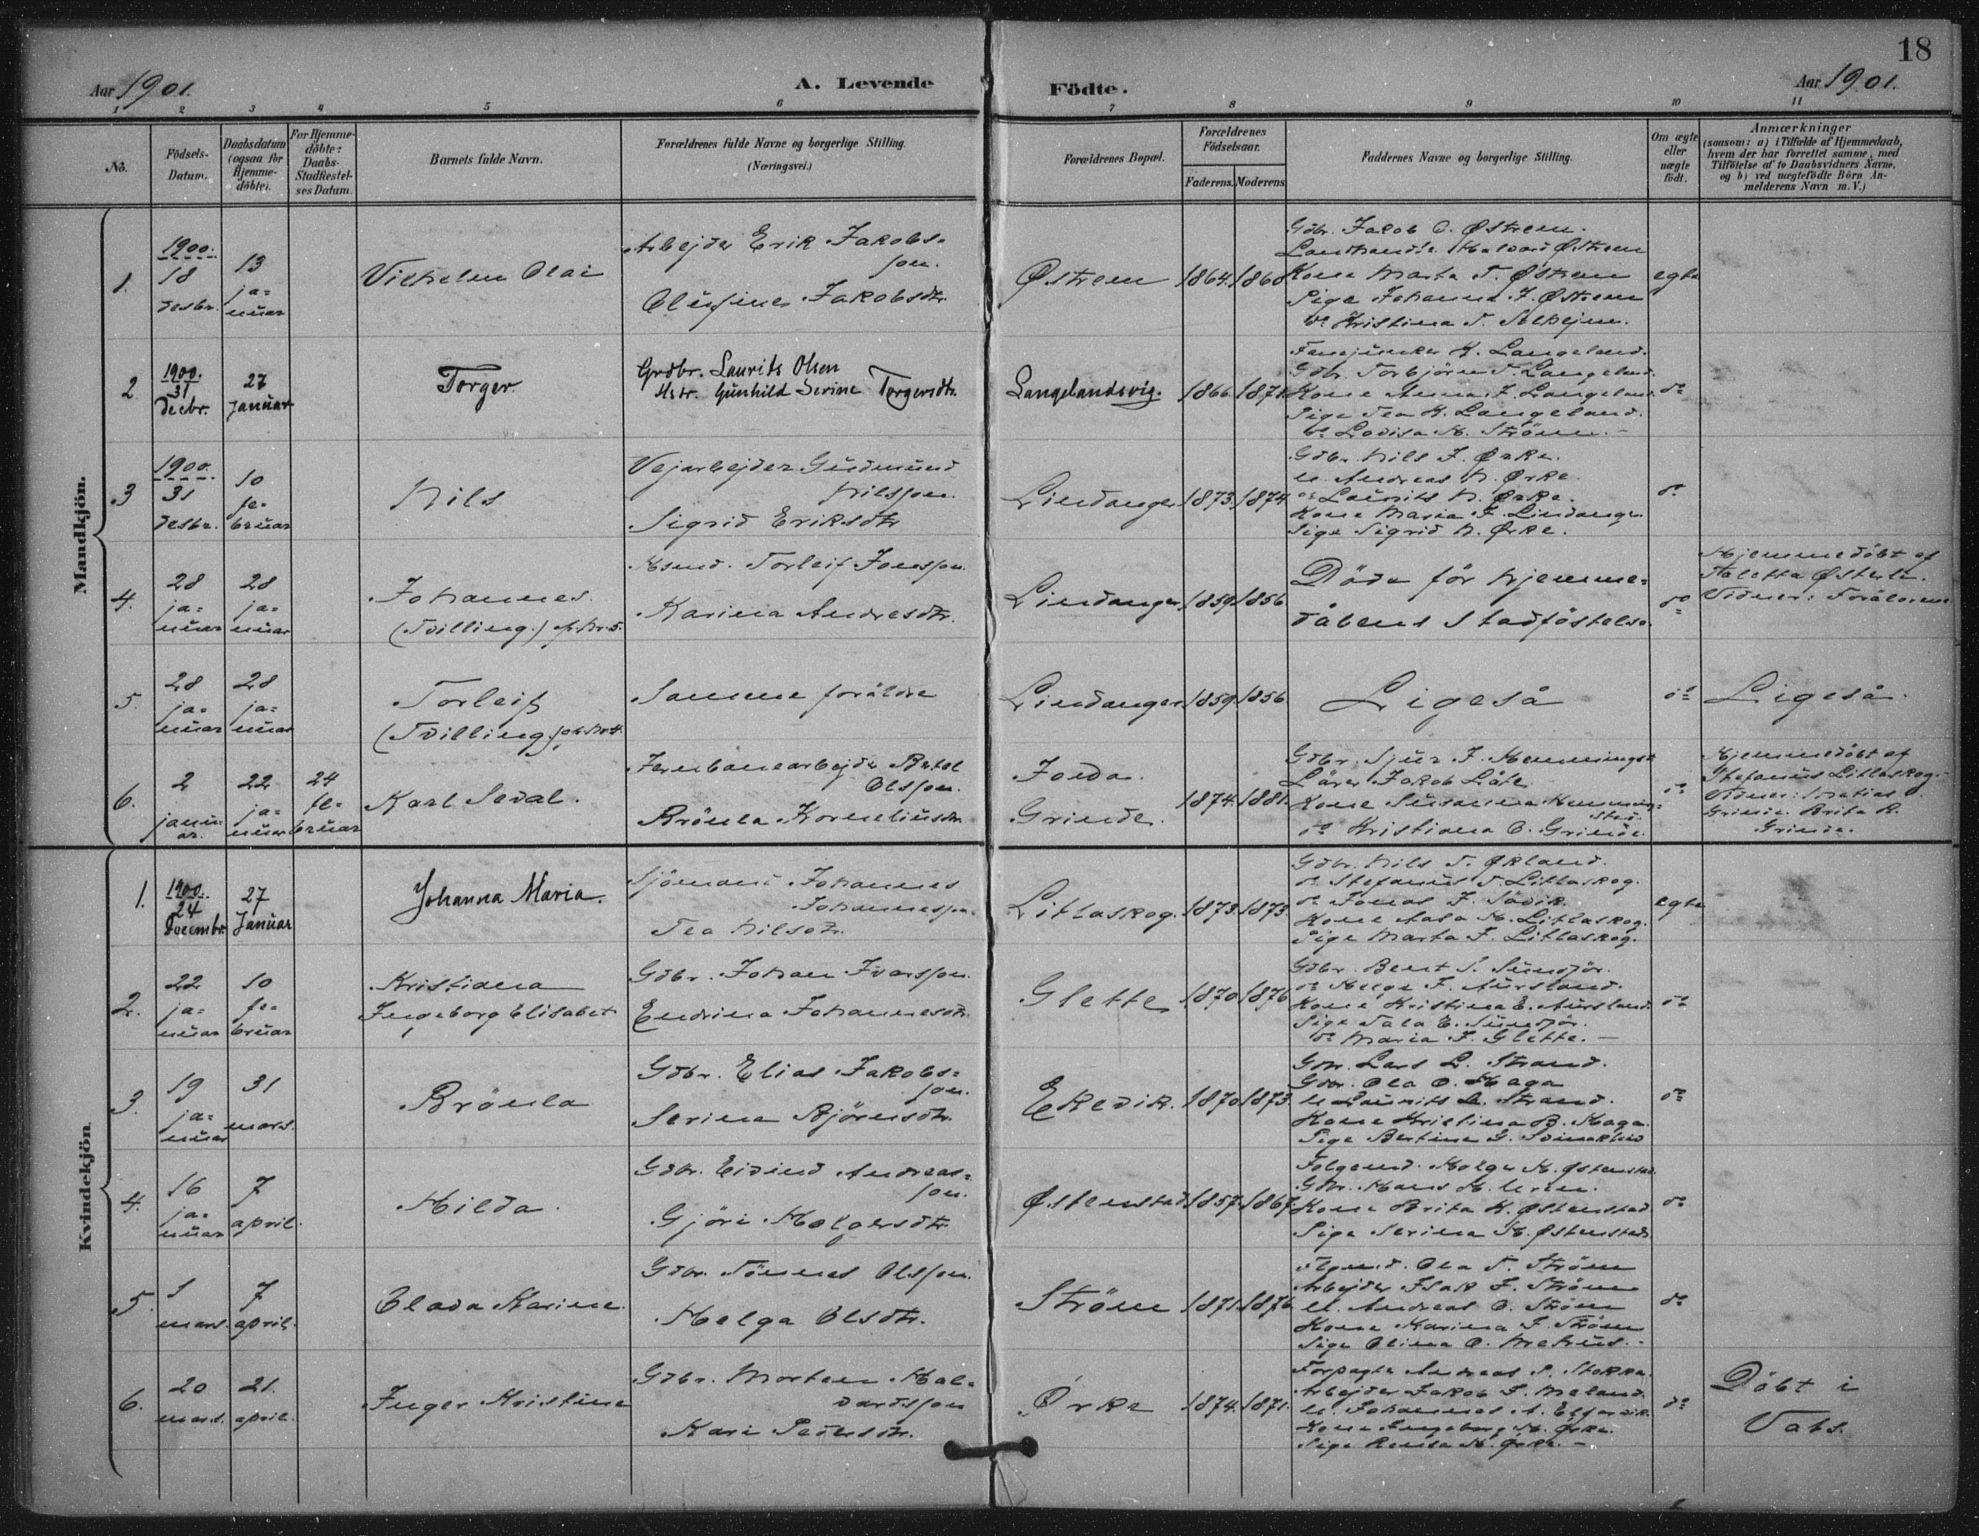 18
Aar 1901.
A. Levende
Födte.
Aar 1901.
1 2 3 4 5 6 7 8 9 10 11
No.
Födsels-
Datum.
Daabsdatum
(ogsaa for
Hjemme-
döbte).
For Hjemme-
döbte:
Daabs-
Stadfæstel-
ses Datum.
Barnets fulde Navn.
Forældrenes fulde Navne og borgerlige Stilling.
(Næringsvei.)
Forældrenes Bopæl.
Forældrenes
Födselsaar.
Faderens. Moderens.
Faddernes Navne og borgerlige Stilling.
Om ægte
eller
uægte
födt.
Anmærkninger
(saasom: a) i Tilfælde af Hjemmedaab,
hvem der har forrettet samme, med
Tilföielse af to Daabsvidners Navne,
og b) ved uægtefödte Börn An-
melderens Navn m. V.)
Mandkjön.
1.
1900.
18
desbr.
13
ja-
nuar
Vilhelm Olai
Arbejder Erik Jakobs-
son.
Olufine Jakobsdtr.
Østrem
1864. 1860
Gdbr. Jakob O. Østrem.
Landhandle. Halvard Østrem
Kone Marta T. Østrem
Pige Johanna J. Østrem
do Kristina T. Solhejm.
egte
2
1900.
31
Decbr.
27
Januar
Torger.
Grdbr. Laurits Olsen
Hstr. Gunhild Serine Torgersdtr.
Langelandsvig.
1866. 1871.
Fanejunker K. Langeland.
Gdbr. Torbjörn T. Langeland.
Kone Anna J. Langeland.
Pige Tea K. Langeland.
do Lovisa H. Ström.
do
3
1900.
31
desbr.
10
fe-
bruar
Nils
Vejarbejder Gudmund
Nilsson.
Sigrid Eriksdtr
Lindanger
1873. 1874.
Gdbr. Nils J. Ørke.
U. Andreas N. Ørke.
do Laurits N. Ørke.
Kone Maria J. Lindanger
Pige Sigrid N. Ørke.
do
4.
28
ja-
nuar
28
ja-
nuar
Johannes.
(Tvilling.) cfr. Nr. 5.
Husmd. Torleif Jonsson.
Karina Andresdtr.
Lindanger.
1859. 1856.
Döde för hjemme-
dåbens stadföstelse.
do
Hjemmedöbt af
Aletta Østerh.
Vidner: Forälrene
5.
28
ja-
nuar
28
ja-
nuar
Torleif
(Tvilling.) cfr. Nr. 4.
Samme foräldre
Lindanger.
1859. 1856.
Ligeså
do
Ligeså.
6.
2
janu-
ar.
22
ja-
nuar
24
fe-
bruar
Karl Sedal.
Jernbanearbejder Bertel
Olsson.
Brönla Korneliusdtr.
Grinde.
1874. 1881.
Gdbr. Sjur J. Hemmingst.
Lärer Jakob Låte
Kone Susanna Hemming-
stad.
do Kristiana O. Grinde
do
Hjemmedöbt af
Stefanus Litlaskog.
Vidner: Matias
Grinde, Brita R.
Grinde.
Kvindekjön.
1.
1900.
24
Decembr
27
Januar
Johanna Maria.
Sjömand Johannes
Johannesson.
Tea Nilsdtr.
Litlaskog.
1873. 1873.
Gdbr. Nils T. Økland.
do Stefanus T. Litlaskog.
do Jonas J. Sövik.
Kone Aasa H. Litlaskog.
Pige Marta J. Litlaskog.
egte
2.
22
ja-
nuar
10
fe-
bruar
Kristiana
Ingeborg Elisabet
Gdbr. Johan Ivarsson.
Endrina Johannesdtr.
Glette
1870. 1876
Gdbr. Bent S. Sundför.
do Helge J. Aursland.
Kone Kristina E. Aursland.
Pige Sala E. Sundför.
do Maria J. Glette.
do
3.
19
ja-
nuar
31
mars.
Brönla
Gdbr. Elias Jakobs-
son.
Serina Björnsdtr.
Ekevik.
1870. 1873.
Gdbr. Lars L. Strand.
Gdbr. Ola O. Haga
U. Laurits L. Strand.
Kone Kristina B. Haga.
Pige Bertine G.
do
4.
16
ja-
nuar
7
april.
Hilda.
Gdbr. Eivind Andreas-
son.
Gjöri Holgersdtr.
Østenstad
1857. 1867.
Folgemd. Holge H. Østenstad.
Gdbr. Hans H. Urun.
Kone Brita H. Østenstad
Pige Serina H. Østenstad.
do
5.
1
mars.
7
april.
Olava Karine.
Gdbr. Tönnes Olsson.
Helga Olsdtr.
Ström
1871. 1876.
Flgmd. Ola T. Ström
Arbejder Isak J. Ström
U. Andreas O. Ström
Kone Marina J. Ström
Pige Olina O. Mehus.
do
6.
20
mars.
21.
april.
Inger Kristine
Gdbr. Morten Hal-
vardsson
Kari Pedersdtr.
Ørke
1874. 1871.
Forpagter Andreas P. Stokka
Arbejder Jakob J. Meland.
U. Johannes A. Elfarvik.
Kone Ingeborg H. Ørke.
Pige Rensa H. Ørke.
do
Döbt i
Vats.